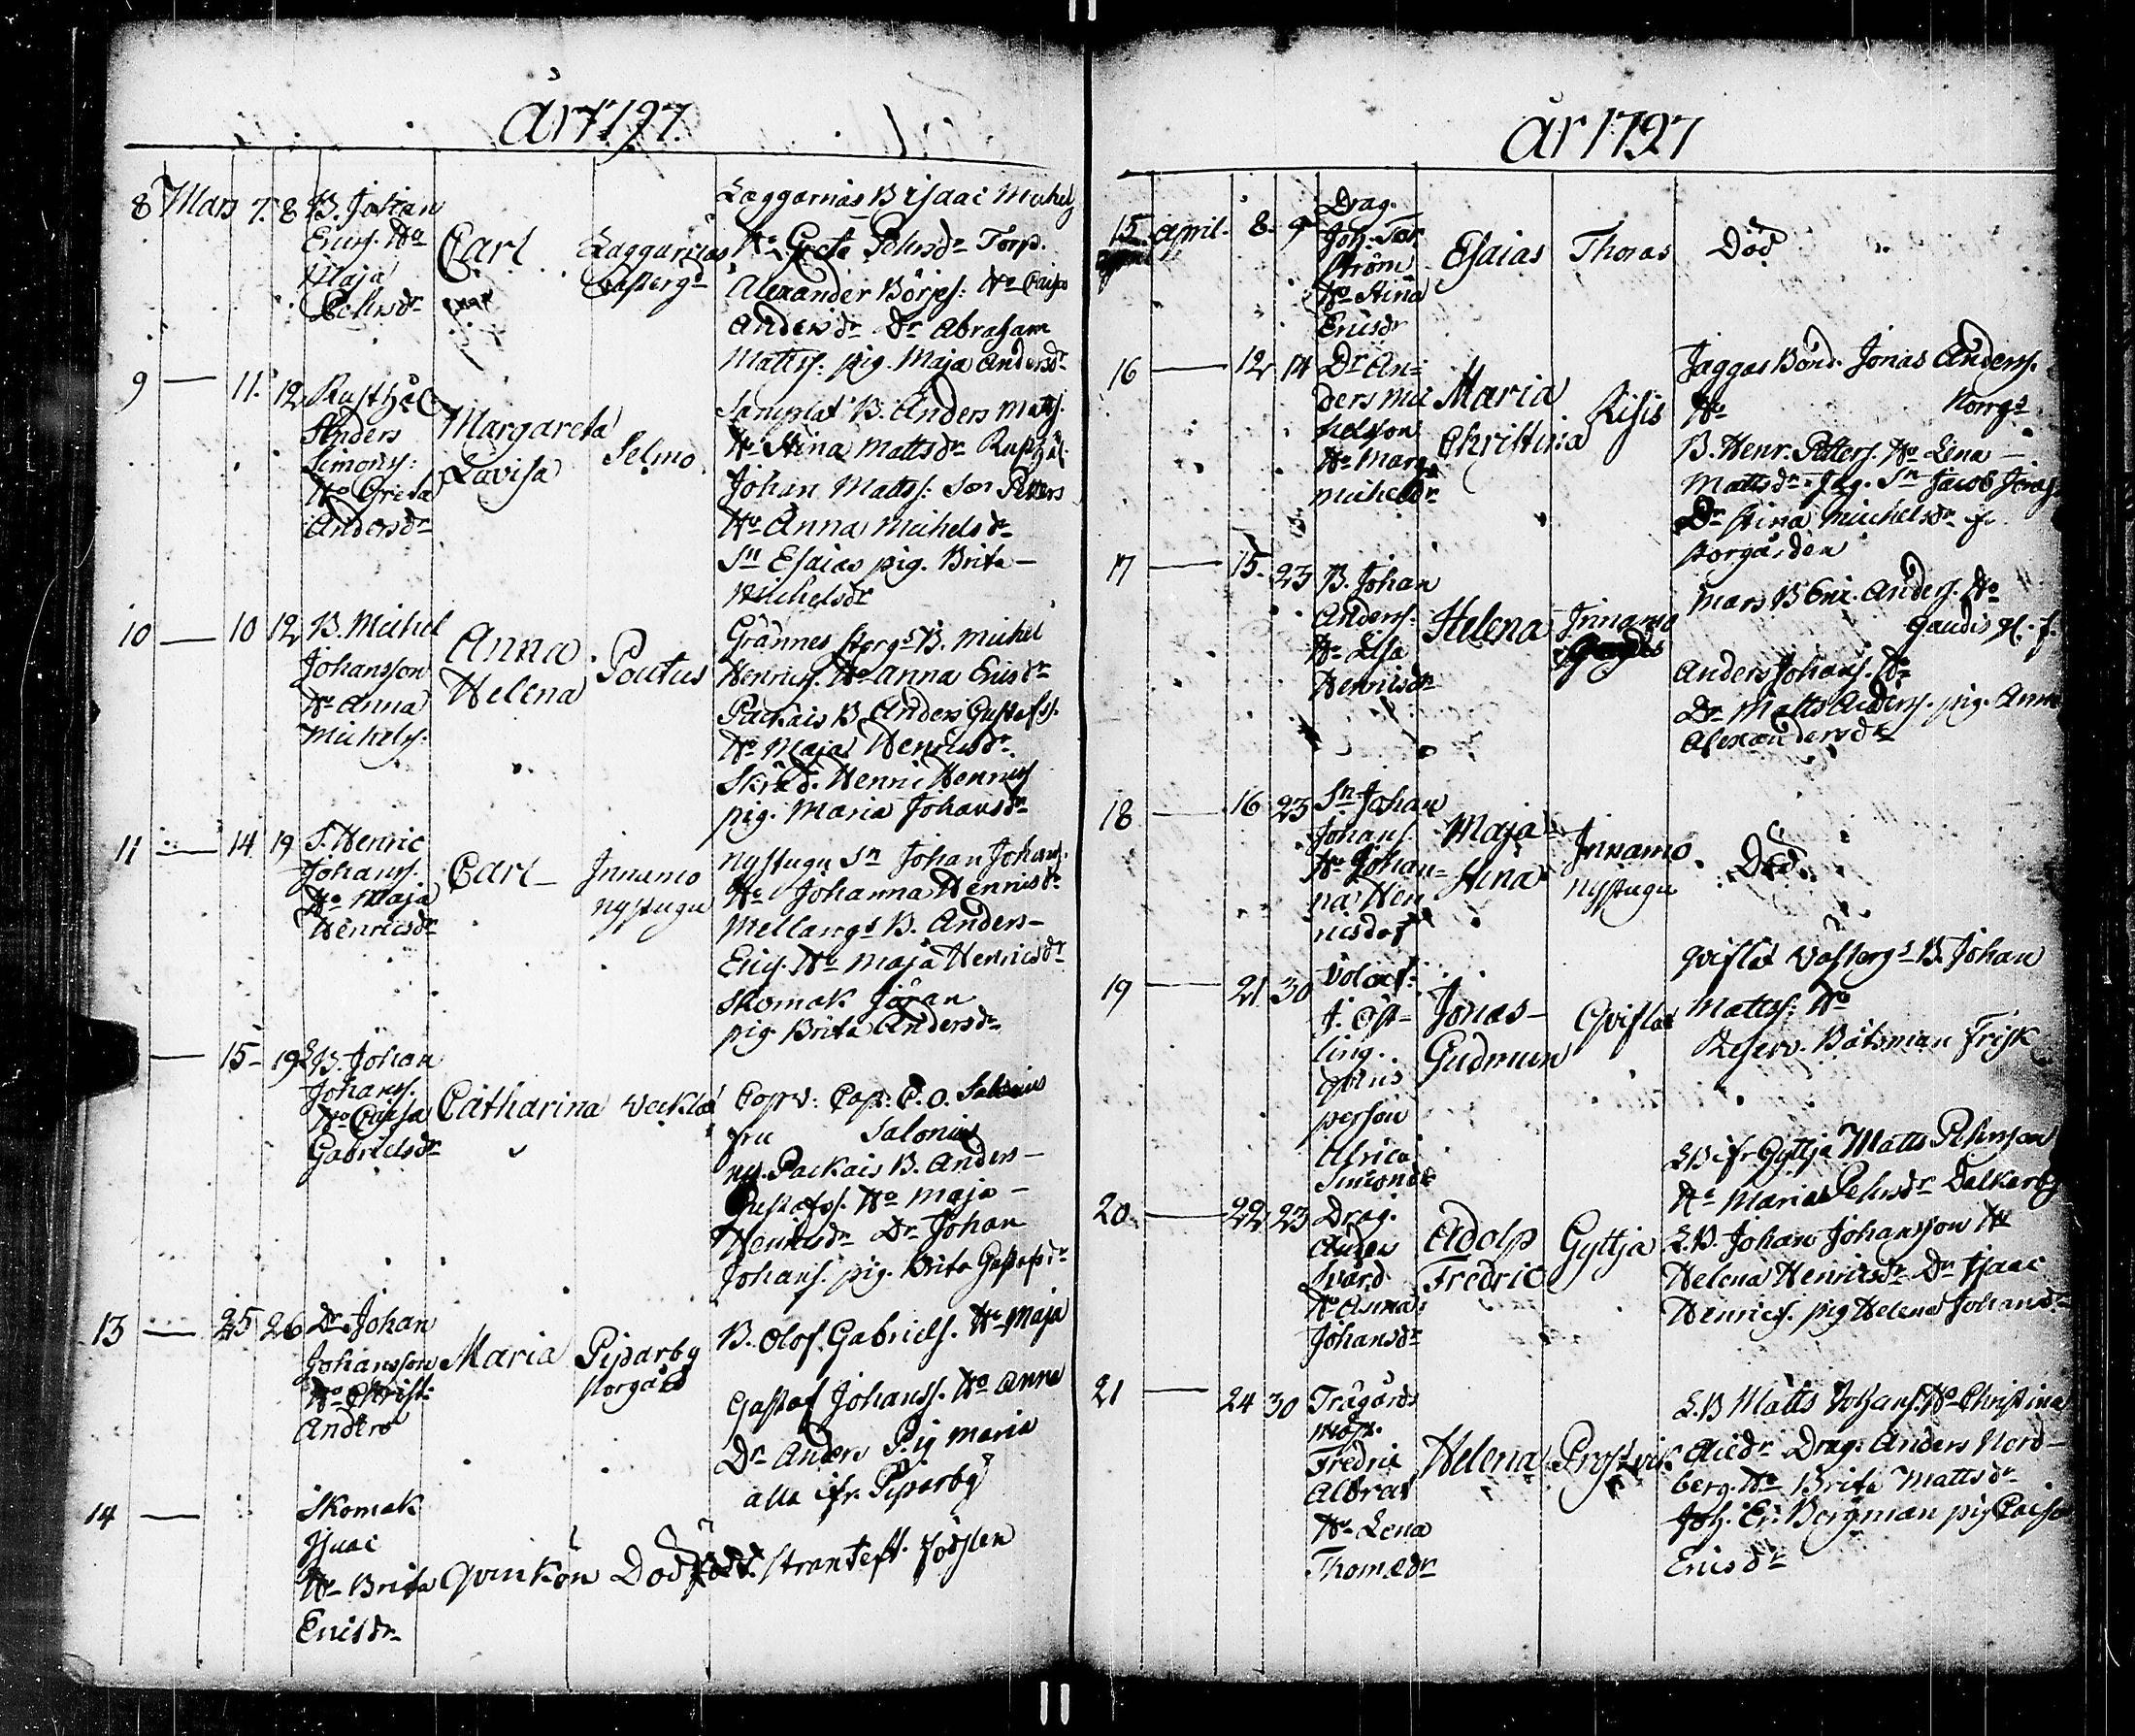 år 1797.
8 Mars 7. 8 B. Johan
Ericss. Ho
Maja
Pehrsdr
Carl
Laggarnäs
Västergd
Laggarnäs B Isaac Michels
Ho Greta Pehrsdr Torp.
Alexander Börjes: Ho Caisa
Andersdr Dr Abraham
Mattss: pig. Maja Andersdr
9 — 11. 12 Rusthål
Anders
Simonss:
Ho Greta
Andersdr
Margareta
Lovisa
Selmo
B. Anders Matts.
Ho Stina Mattsdr Rusthål
Johan Mattss: Petters
Ho Anna Michelsdr
Sn Esaias pig. Brita —
Michelsdr
10 — 10 12 B. Michel
Johansson
Ho Anna
Michelss:
Anna
Helena
Poutus
Grännes storgd B. Michel
Henricss. Ho Anna Ericsdr
Packais B Anders Gustafss.
Ho Maja Henricsdr
Skräd. Henric Henricss
pig. Maria Johansdr
11 — 14 19 S. Henric
Johanss.
Ho Maja
Henricsdr
Carl —
Innamo
nystugu
nystugu Sn Johan Johanss.
Ho Johanna Henricsdr
Mellangd B. Anders —
Erics. Ho Maja Henricsdr
Skomak Jöran
pig Brita Andersdr
— 15 — 19 B. Johan
Johanss.
Ho Caisa
Gabrielsdr
Catharina
Capv: Cap: C. O. Salonius
fru Salonius
Packais B. Anders —
Gustafss. Ho Maja —
Henricsdr Dr Johan
Johanss. pig. Brita Gustafsdr
13 — 25 26 Dr Johan
Johansson
Ho Christ:
Anders
Maria
Piparby
storgård
B. Olof Gabriels. Ho Maja
Gustaf Johanss. Ho Anna
Dr Anders Pig Maria
alla ifr. Piparby
14 — Skomak
Isaac
Ho Brita
Ericsdr
Qvinkön Dödfödt. strax eft. födslen
år 1797
15 April. 8. 9 Drag.
Joh. Tor
ström
Ho Stina
Ericsdr
Esaias
Thoras
Död
16 — 12 14 Dr An=
ders Mic
helsson
Ho Marg
Michelsdr
Maria
Christina
Risis
Jaggas Bond. Jonas Anderss.
Ho Norrgd
B. Henr. Petters. Ho Lena —
Mattsdr Sn Jacob Jonas
Dr Stina Michelsdr f.
storgården
17 — 15. 23 B. Johan
Anderss.
Ho Lisa
Henricsdr
Helena
Innamo
Mars B Eric. Anders. Ho
Anders Johans. Ho
Dr Matts Anderss. pig. Anna
Alexandersdr
18 — 16 23 Sn Johan
Johanss.
Ho Johan=
na Hen
ricsdr
Maja
Stina
Innamo
nystugu
Död.
19 — 21 30 Volat.
J. Öst—
ling.
qvins
person
Ulrica
Simonsdr
Jonas —
Gudmun
Qvislat
Qvislat Västergd B. Johan
Mattss: Ho
Reserv. Båtsman Frisk
20 — 22 23 Drag.
Anders
Svärd
Ho Anna
Johansdr
Adolp
Fredric
Gyttja
L.B ifr Gyttja Matts Pehrsson
Ho Maria Pehrsdr Dalkarby
L.B. Johan Johansson Ho
Helena Henricsdr Dr Isaac
Henrics. pig Helena Johansdr
21 — 24 30 Trägårds
mäst.
Fredric
Ho Lena
Thomædr
Helena
Prostvik
L.B Matts Johans. Ho Christina
Drag. Anders Nord—
berg. Ho Brita Mattsdr
Joh. Er. Bergman pig Caisa
Ericsdr